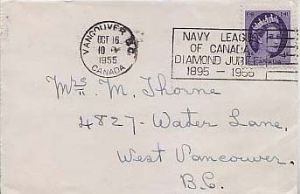 VANCOUVER B.C.
OCT 16
10 PM
1955
CANADA
NAVY LEAGUE
OF CANADA
DIAMOND JUBILEE
1895 - 1955
Mrs. M. Thorne
4827 - Water Lane,
West Vancouver,
B.C.